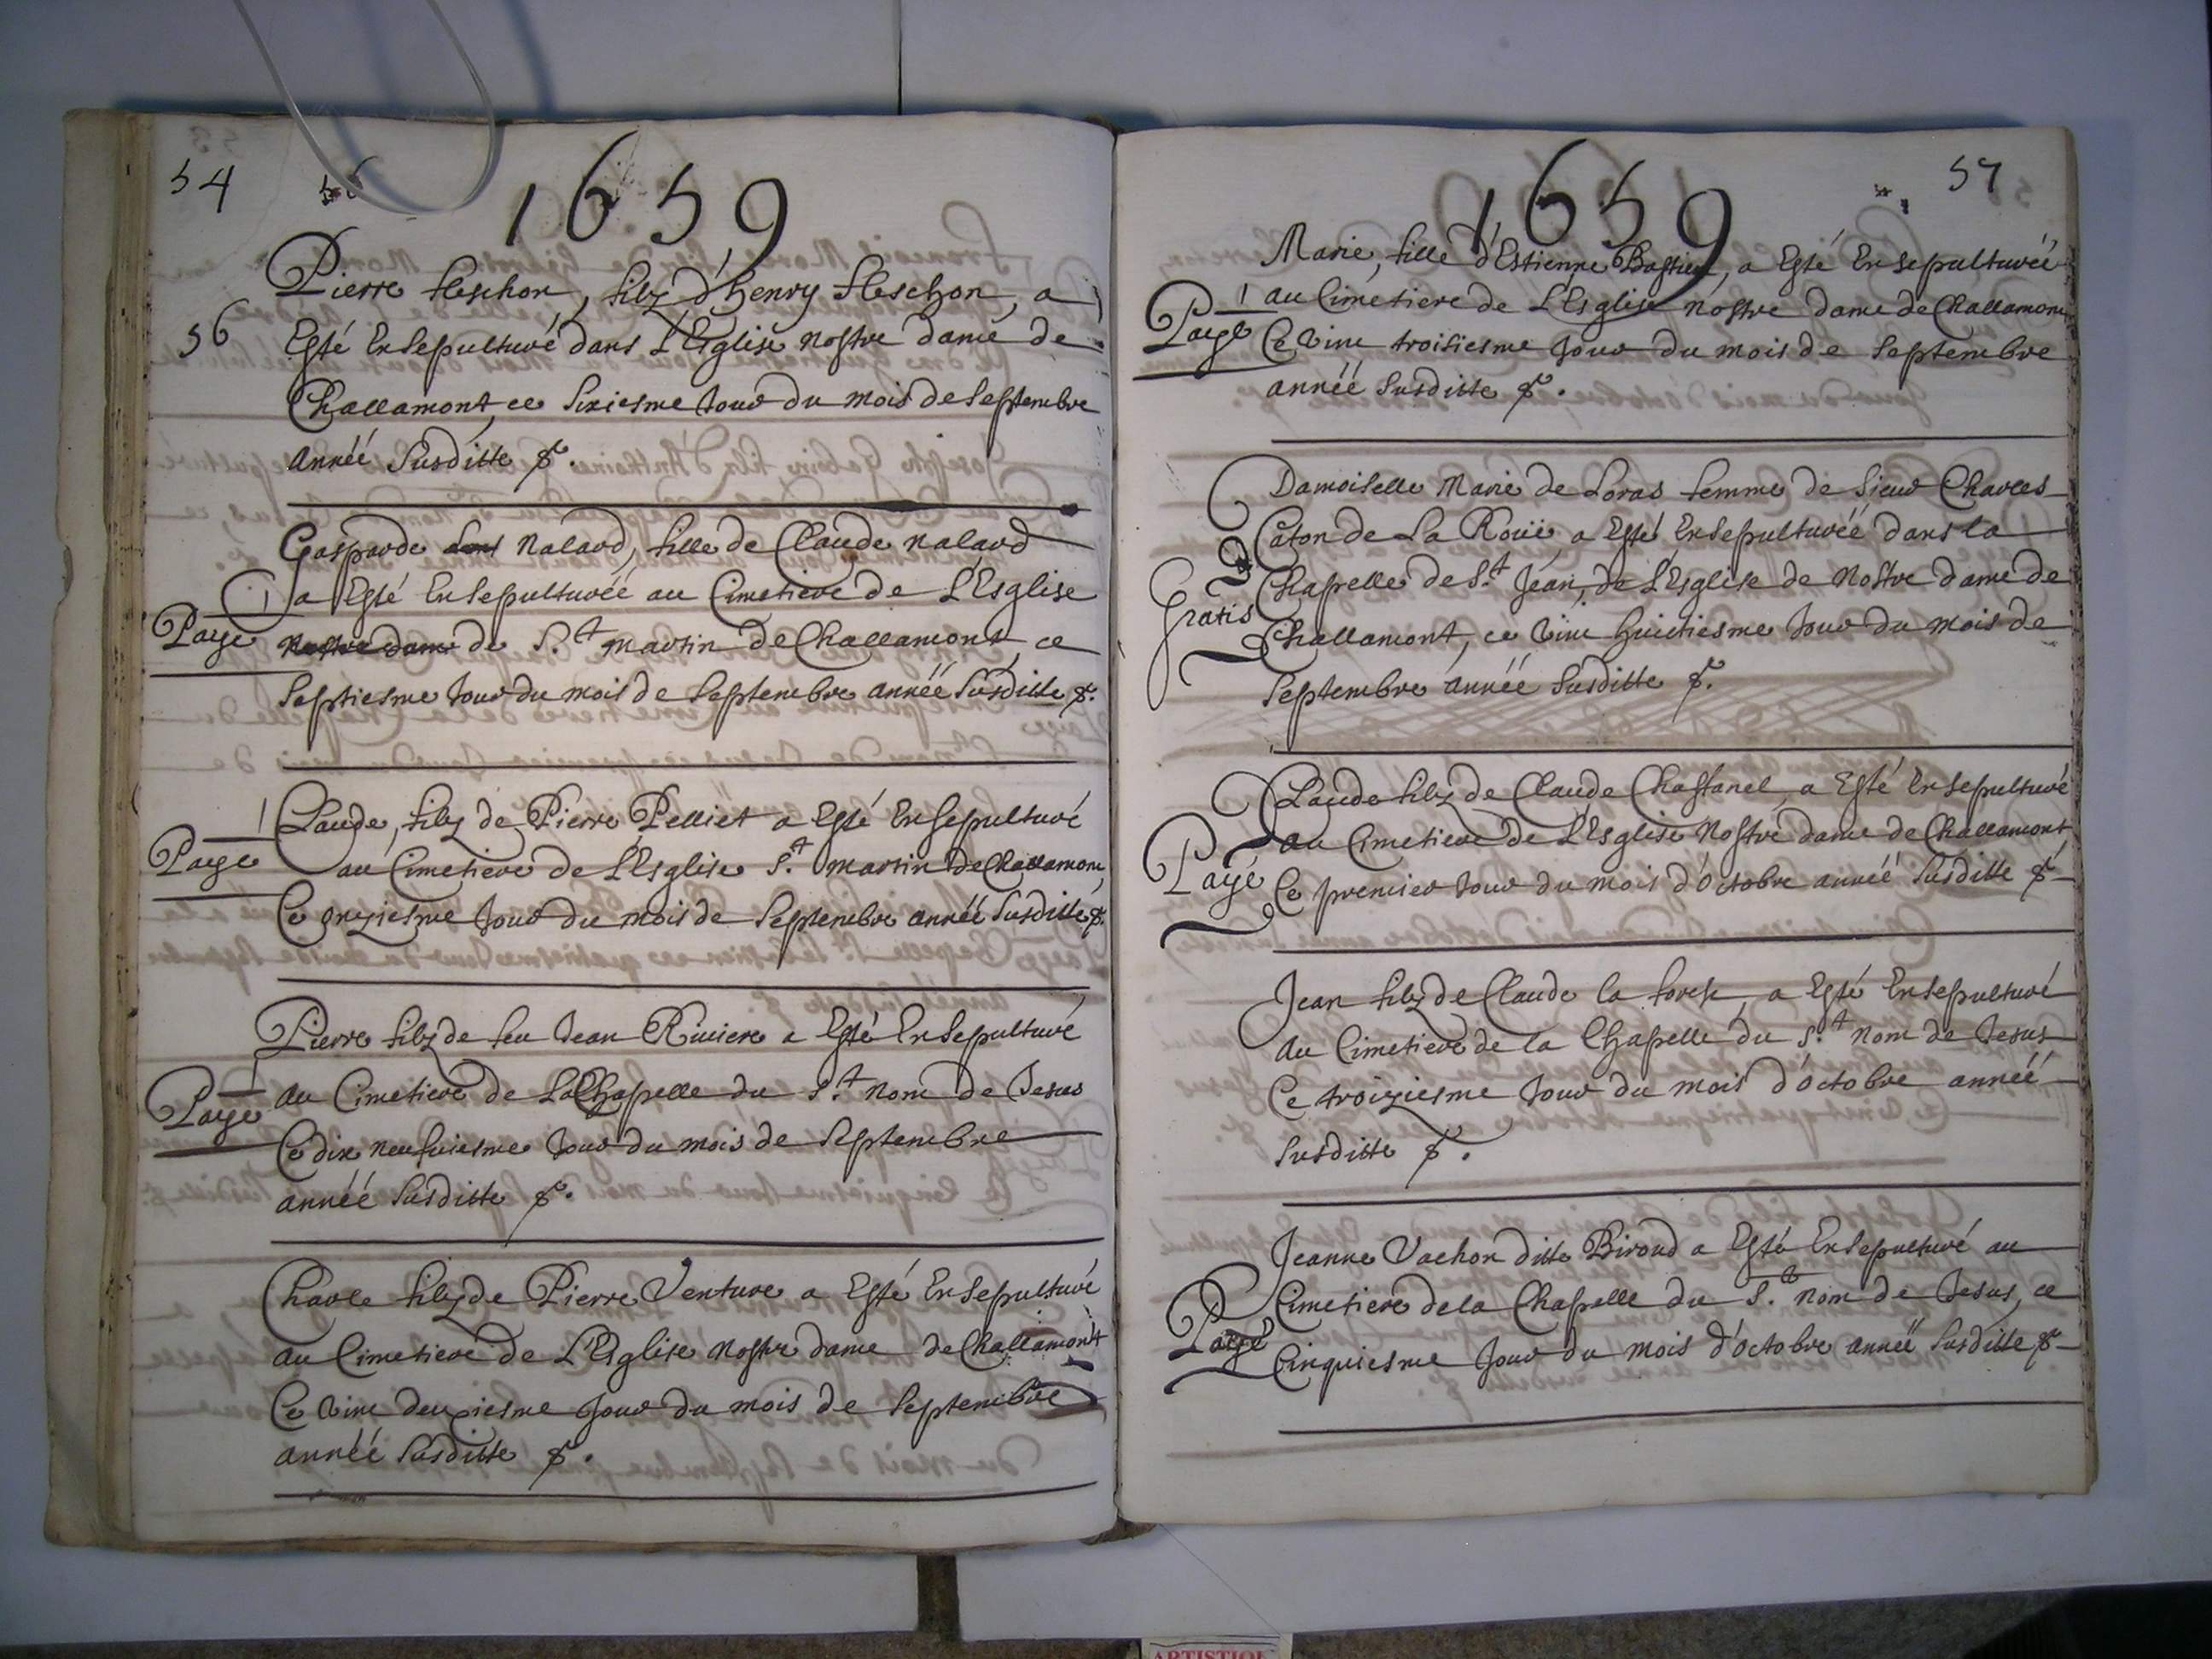 54 56
1659
Pierre fleschon, filz d'henry fleschon, a
56
Esté Ensepulturé dans L'Esglise nostre dame de
Challamont ce sixiesme Jour du mois de Septembre
année Susditte &.
Gasparde nalard, fille de Claude nalard
a Esté Ensepulturéé au Cimetiere de L'Esglise
Paye
nostre dame de S.t martin de Challamont, ce
Septiesme Jour du mois de Septembre année Susditte &.
Claude, filz de Pierre Pelliet a Esté Ensepulturé
Paye
au Cimetiere de L'Esglise S.t martin de Challamont
Ce onziesme Jour du mois de Septembre année Susditte &.
Pierre filz de feu Jean Riuiere a Esté Ensepulturé
Paye
au Cimetiere de La Chapelle du S.t Nom de Jesus
Ce dix neufuiesme Jour du mois de Septembre
année Susditte &.
Charle filz de Pierre Venture a Esté Ensepulturé
au Cimetiere de L'Esglise Nostre dame de Challamont
Ce vint deuxiesme Jour du mois de Septembre
année Susditte &.
57
1659
Marie, fille d'Estienne Bastien, a Esté Ensepulturéé
au Cimetiere de L'Esglise nostre dame de Challamont
Paye
Ce vint troisiesme Jour du mois de Septembre
année Susditte &.
Damoiselle Marie de Loras femme de Sieur Charles
Caton de La Roüe a Esté Ensepulturéé dans la
Chapelle de S.t Jean, de L'Esglise de Nostre dame de
Gratis
Challamont, ce vint huictiesme Jour du mois de
Septembre année Susditte &.
Claude filz de Claude Chastanel, a Esté Ensepulturé
au Cimetiere de L'Esglise Nostre dame de Challamont
Payé
Ce premier Jour du mois d'octobre année Susditte &
Jean filz de Claude la forest, a Esté Ensepulturé
Au Cimetiere de la Chapelle du S.t Nom de Jesus
Ce troiziesme Jour du mois d'octobre année
Susditte &.
Jeanne Vachon ditte Biroud a Esté Ensepulturé au
Cimetiere de la Chapelle du S.t nom de Jesus, ce
Payé
Cinquiesme Jour du mois d'octobre année Susditte &